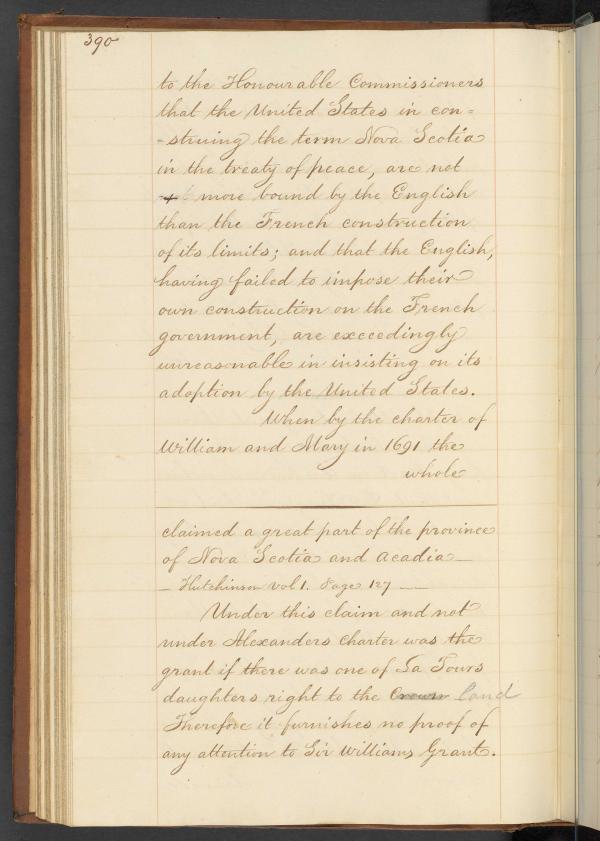 390
to the Honourable Commissioners
that the United States in con=
-struing the term Nova Scotia
in the treaty of peace, are not
more bound by the English
than the French construction
of its limits; and that the English,
having failed to impose their
own construction on the French
government, are exceedingly
unreasonable in insisting on its
adoption by the United States.
When by the charter of
William and Mary in 1691 the
whole
claimed a great part of the province
of Nova Scotia and Acadia—
— Hutchinson vol 1. Page 127 —
Under this claim and not
under Alexanders charter was the
grant if there was one of La Tours
daughters right to the Crown land
Therefore it furnishes no proof of
any attention to Sir Williams Grant.